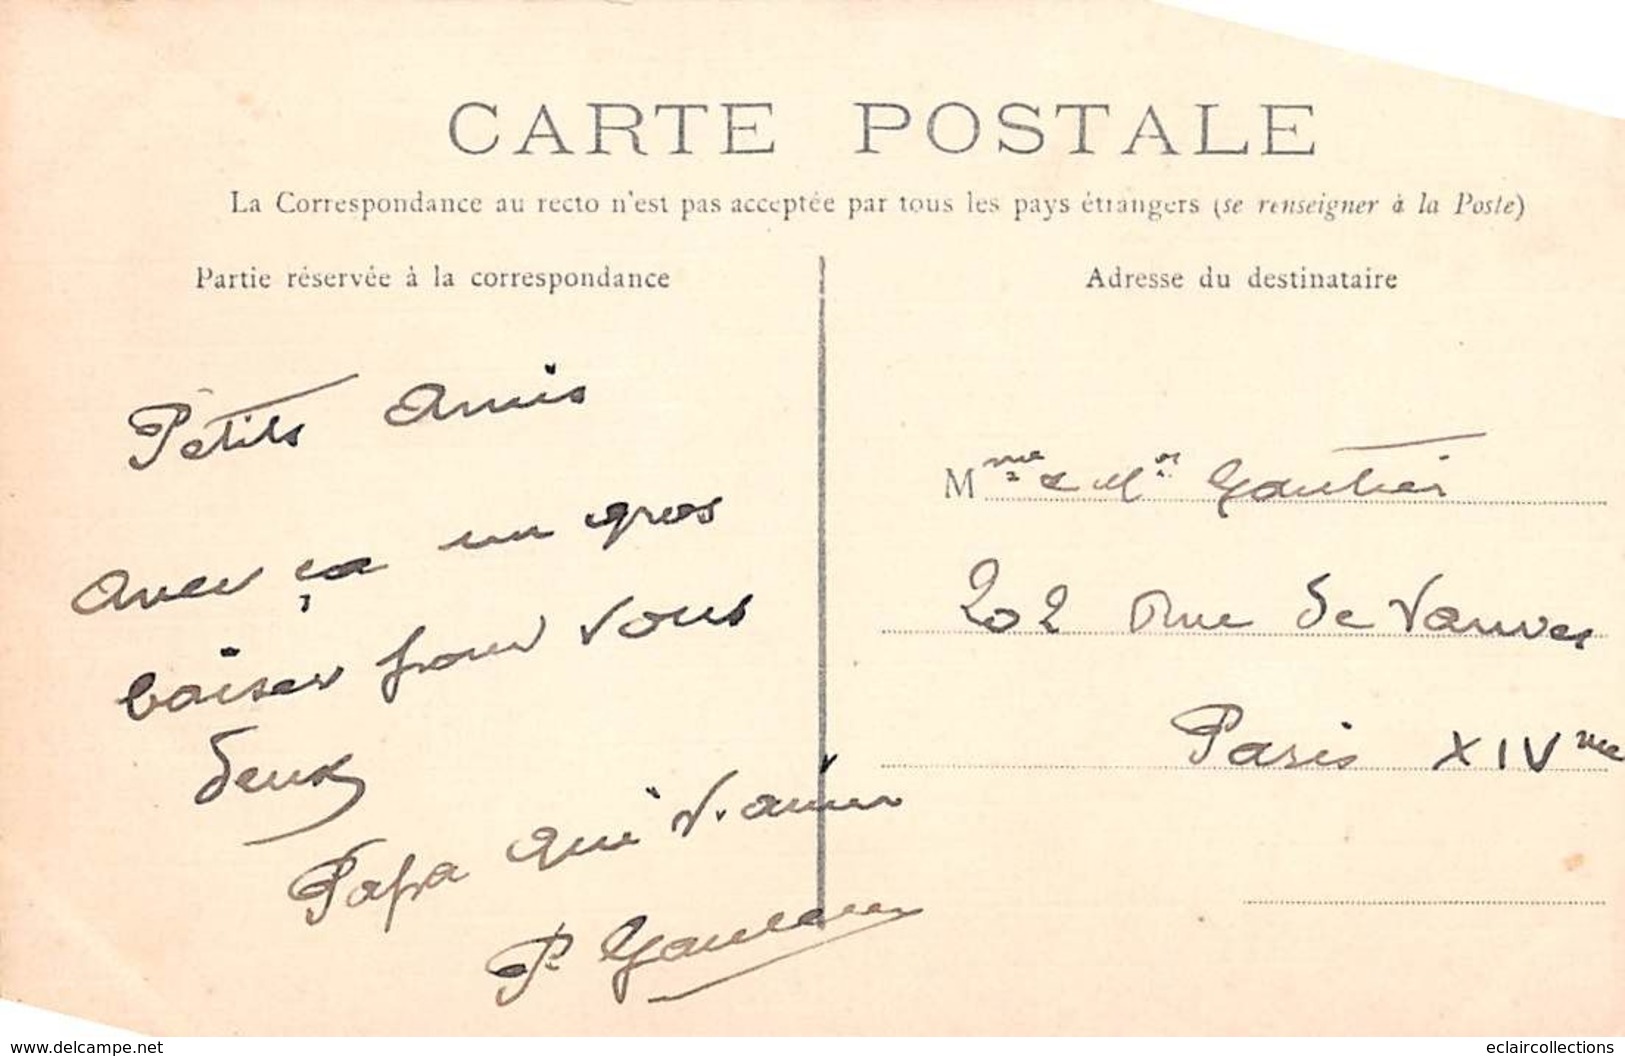 CARTE POSTALE
La Correspondance au recto n'est pas acceptée par tous les pays étrangers (se renseigner à la Poste)
Partie réservée à la correspondance
Petits amis
avec ça un gros
baiser pour vous
deux
Papa qui v. aime
P.
Adresse du destinataire
Mme & Mr Gautier
202 Rue de Vanves
Paris XIVme
www.delcampe.net
eclaircollections